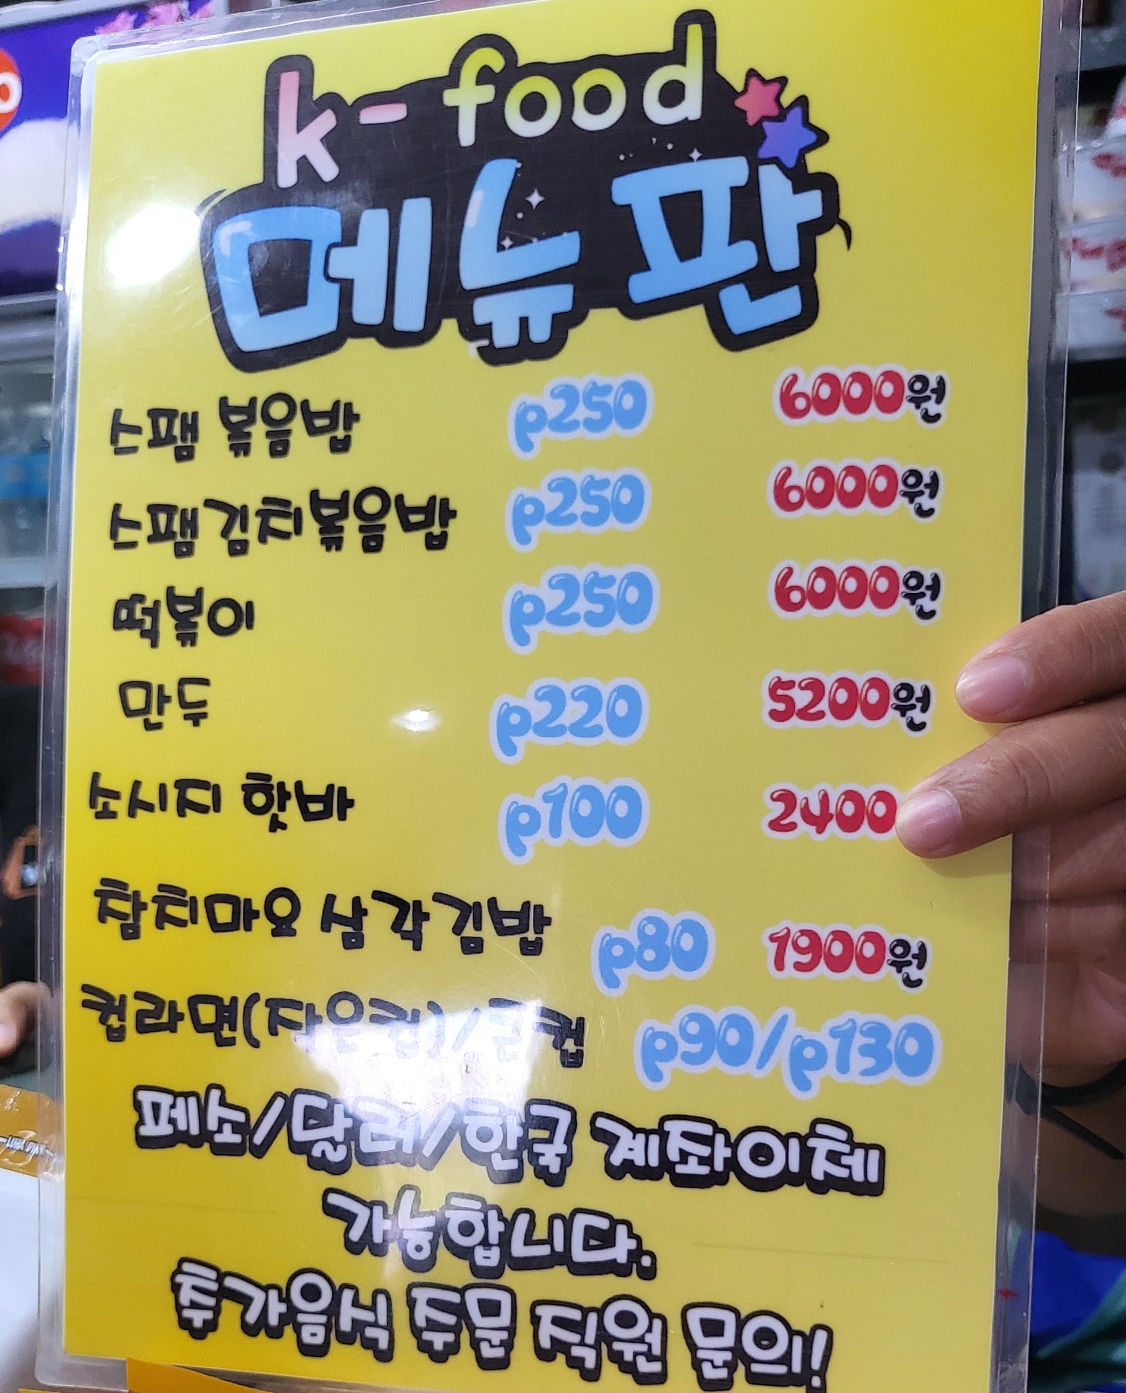 k-food
메뉴판
스팸 볶음밥 p250 6000원
스팸김치볶음밥 p250 6000원
떡볶이 p250 6000원
만두 p220 5200원
소시지 핫바 p100 2400
참치마요 삼각김밥 p80 1900원
컵라면(작은컵)/큰컵 p90/p130
페소/달러/한국 계좌이체
가능합니다.
추가음식 주문 직원 문의!